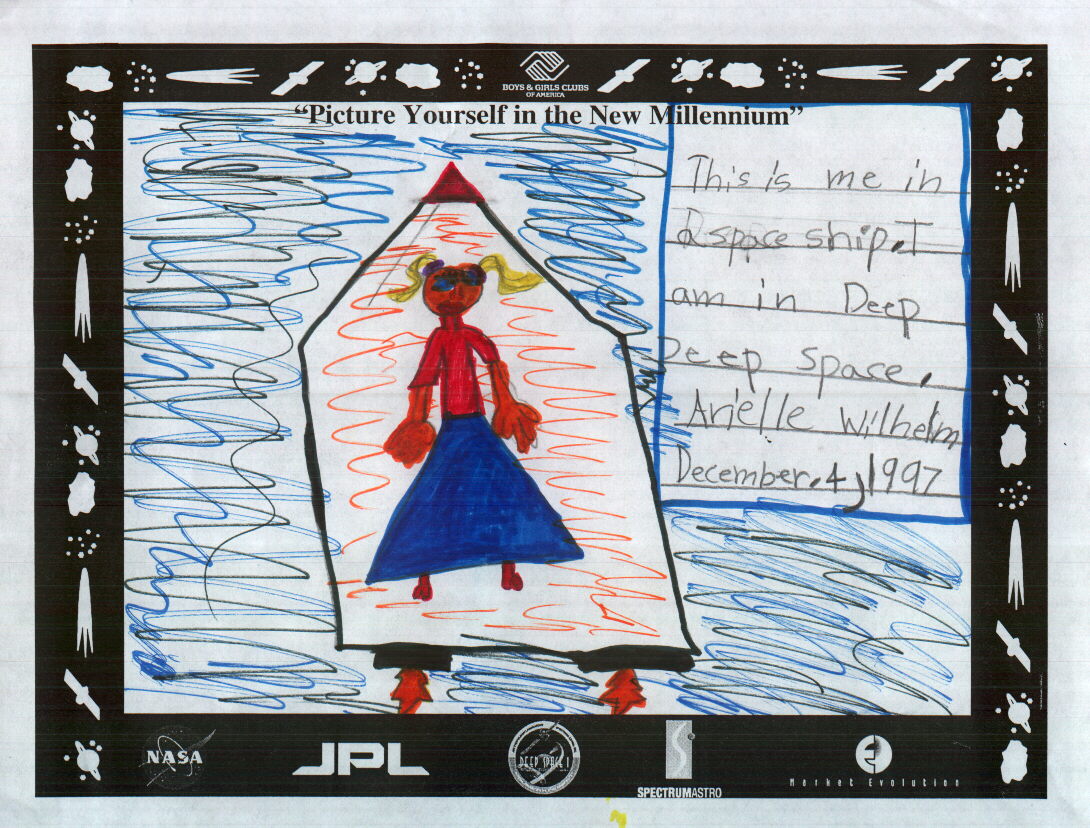 BOYS & GIRLS CLUBS
OF AMERICA
“Picture Yourself in the New Millennium”
This is me in
a space ship. I
am in Deep
Deep space.
Arielle Wilhelm
December, 4, 1997
NASA
JPL
DEEP SPACE 1
SPECTRUMASTRO
Market Evolution